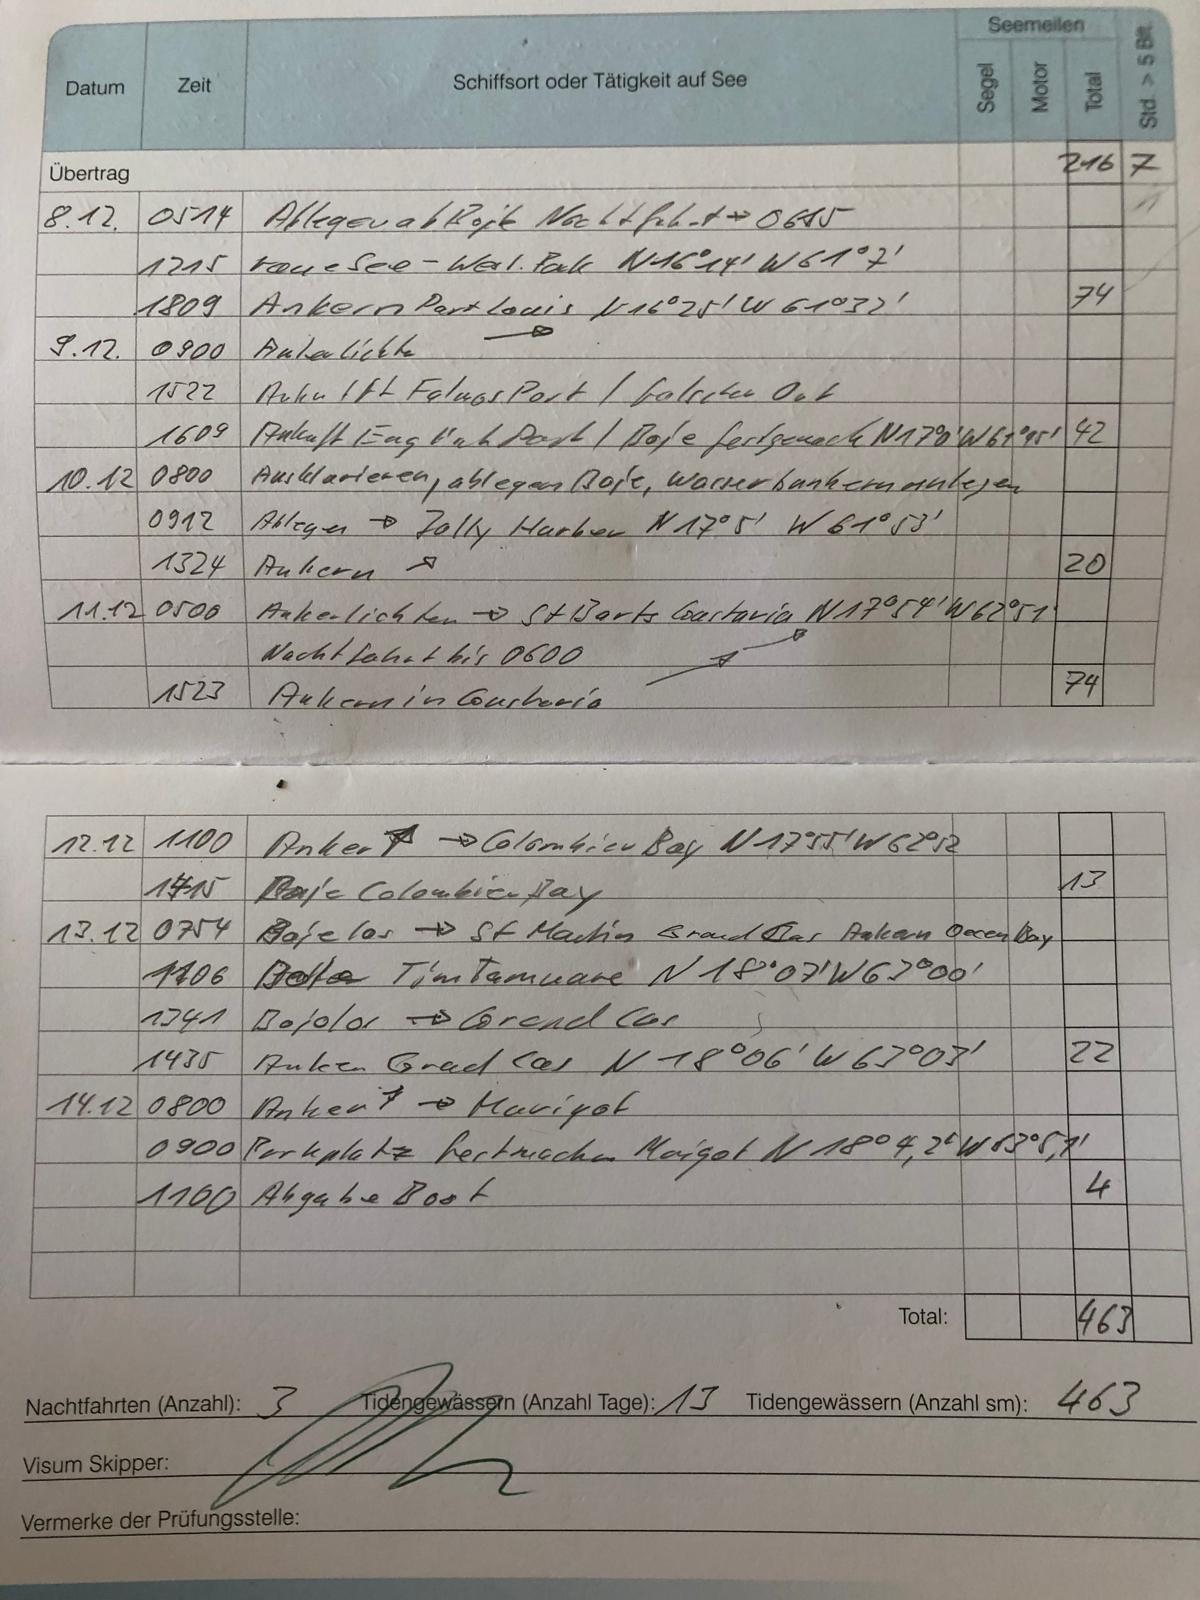 Seemeilen
Datum Zeit Schiffsort oder Tätigkeit auf See Segel Motor Total Std. > 5 Bft.
Übertrag 216 7
8.12. 0514 Ablegen ab Boje Nachtfahrt → 0615
1215 See - N 16°14' W 61°7'
1809 Ankern Port Louis N 16°25' W 61°32' 74
9.12. 0900 Ankerlichte →
1522 Ankunft Port / falscher Ort
1609 Ankuft English Port / Boje festgemach N 17°0' W 61°45' 42
10.12 0800 Ausklarieren, ablegen Boje, Wasserbunkern anlegen
0912 Ablegen → Jolly Harber N 17°5' W 61°53'
1324 Ankern 20
11.12 0500 Ankerlichten → St Barts Gustavia N 17°54' W 62°51'
Nachtfahrt bis 0600
1523 Ankern in Gustavia 74
12.12 1100 Anker ↑ → Colombier Bay N 17°55' W 62°52
15 Boje Colombier Bay 13
13.12 0754 Boje los → St Martin Grand Cas Ankern Bay
1106 N 18°07' W 63°00'
1341 Bojelos → Grand Cas
1435 Anker Grad Cas N 18°06' W 63°03' 22
14.12 0800 Anker ↑ → Marigot
0900 Parkplatz festmachen Maigot N 18°4,2' W 63°5,1'
1100 Abgabe Boot 4
Total: 463
Nachtfahrten (Anzahl): 3 Tidengewässern (Anzahl Tage): 13 Tidengewässern (Anzahl sm): 463
Visum Skipper:
Vermerke der Prüfungsstelle: